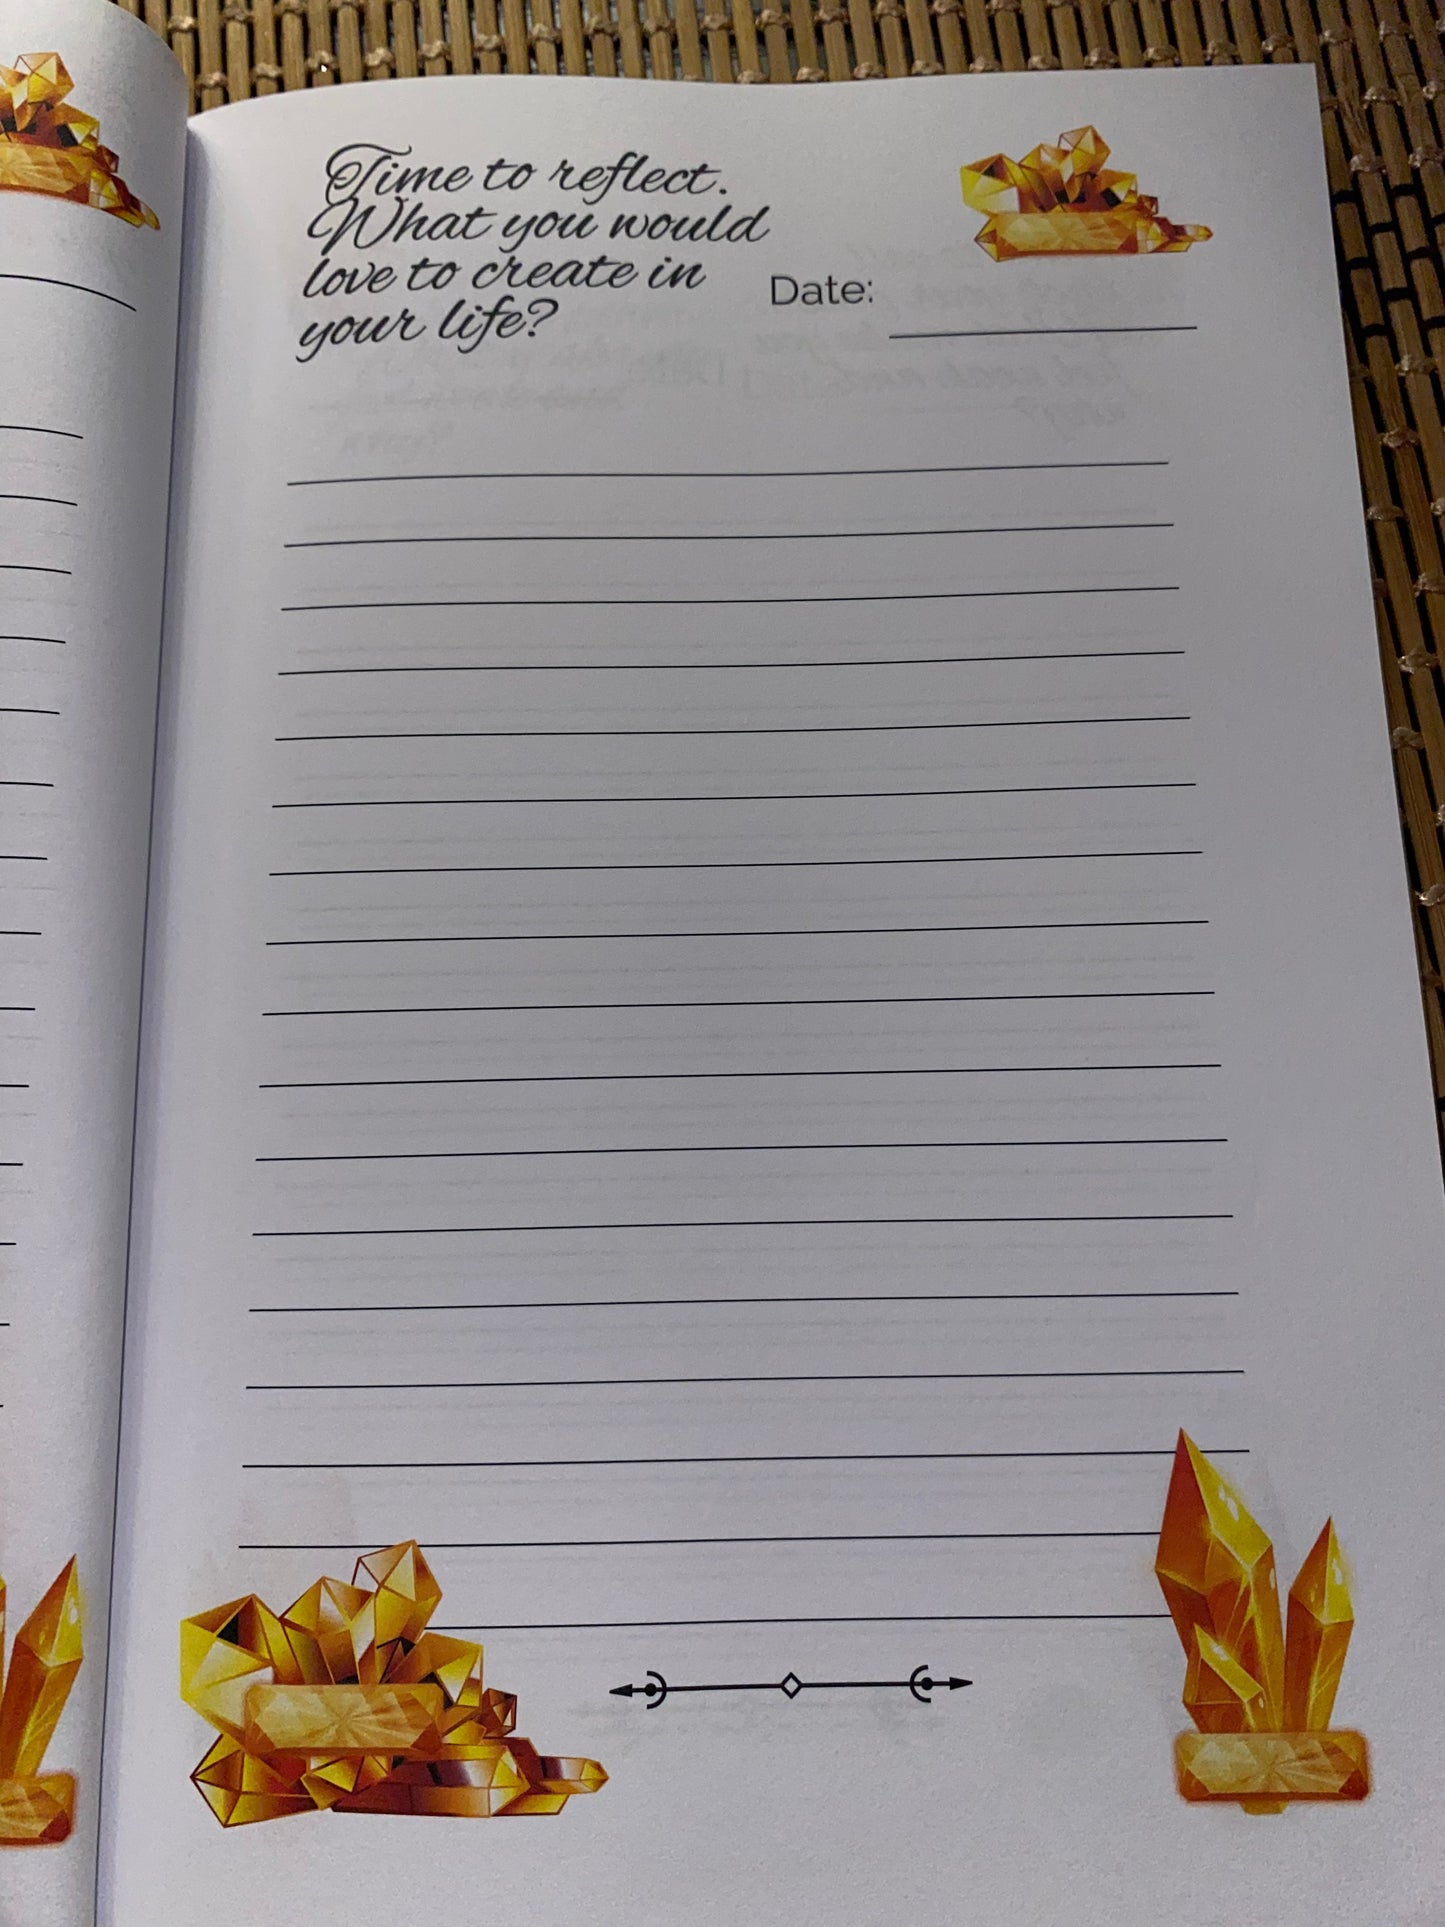 Time to reflect.
What you would
love to create in
your life?
Date: